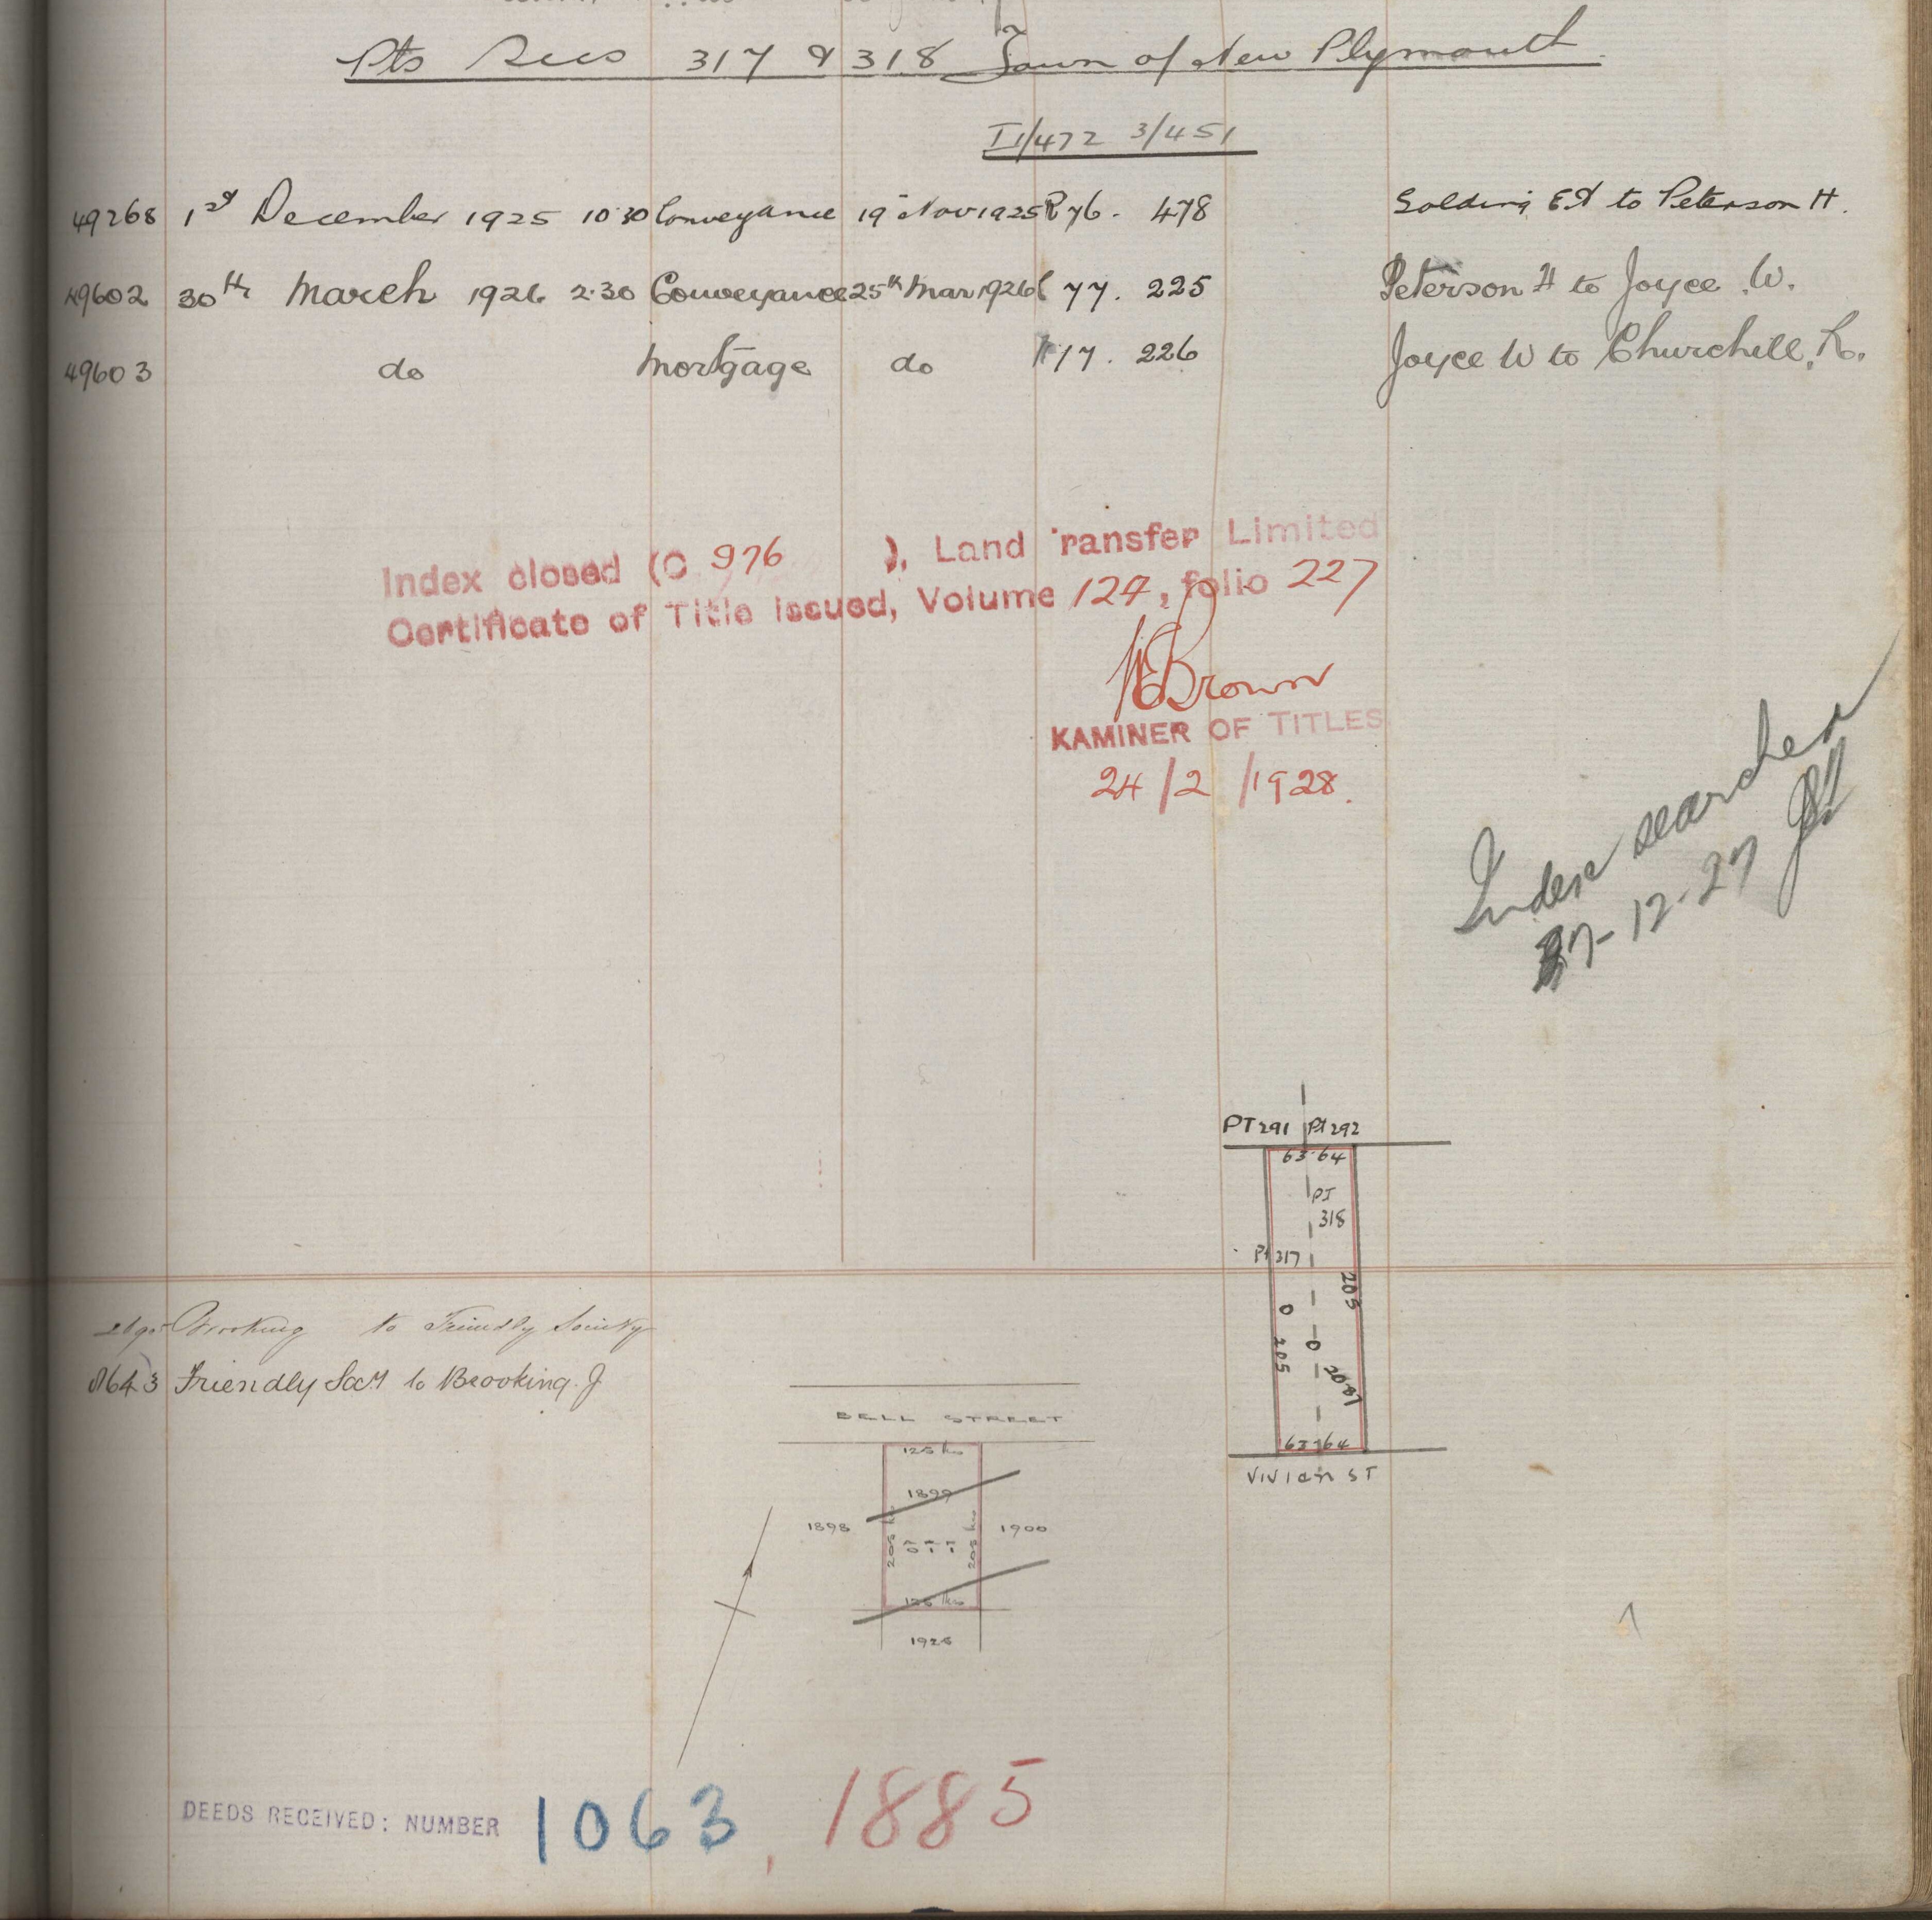 Pts Secs 317 & 318 Town of New Plymouth
I1/472 3/451
49268 1st December 1925 10.30 Conveyance 19 Nov 1925 R 76. 478 Golding E A to Peterson H.
49602 30th March 1926 2.30 Conveyance 25th Mar 1926 77. 225 Peterson H to Joyce W.
49603 do Mortgage do 77. 226 Joyce W to Churchill
Index closed (C 976 ), Land Transfer Limited
Certificate of Title issued, Volume 124, folio 227
Brown
KAMINER OF TITLES
24/2/1928.
Index searched
27-12-27
PT 291 Pt 292
63.64
PT
318
Pt 317
203
0
0
205
63.64
VIVIAN ST
Brooking to Friendly Society
Friendly Socy to Brooking. J
BELL STREET
125 lks
1899
1898
1900
205 lks
205 lks
125 lks
DEEDS RECEIVED: NUMBER 1063, 1885